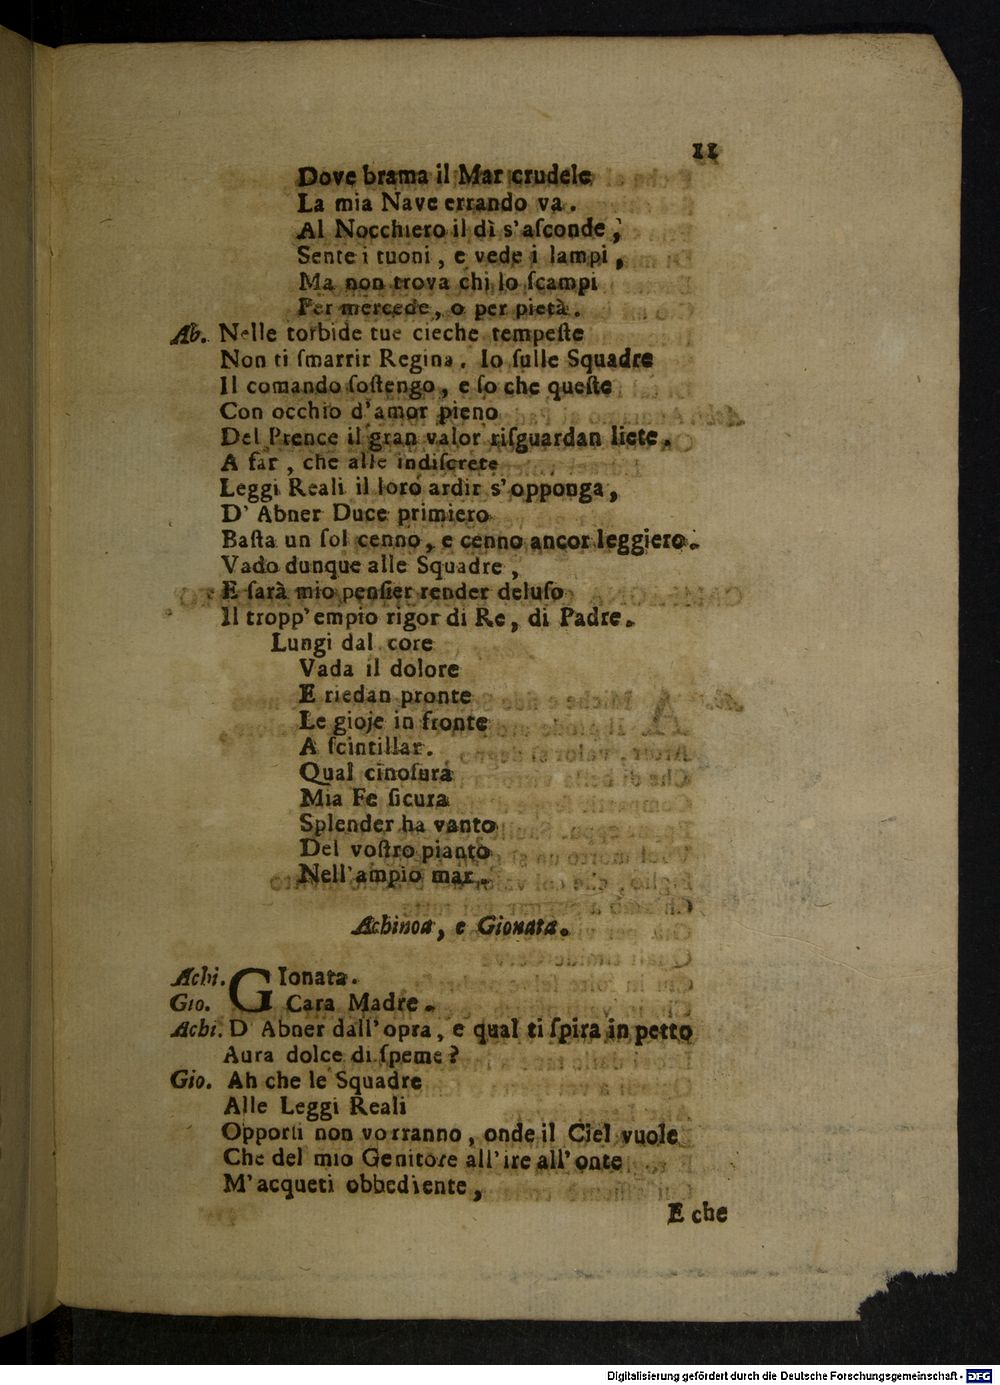 11
Dove brama il Mar crudele
La mia Nave errando va.
Al Nocchiero il dì s'aſconde,
Sente i tuoni, e vede i lampi,
Ma non trova chi lo ſcampi
Per mercede, o per pietà.
Ab. Nelle torbide tue cieche tempeſte
Non ti ſmarrir Regina. Io ſulle Squadre
Il comando ſoſtengo, e ſo che queſte
Con occhio d'amor pieno
Del Prence il gran valor riſguardan liete.
A far, che alle indiſcrete
Leggi Reali il loro ardir s'opponga,
D' Abner Duce primiero
Baſta un ſol cenno, e cenno ancor leggiero.
Vado dunque alle Squadre,
E ſarà mio penſier render deluſo
Il tropp' empio rigor di Re, di Padre.
Lungi dal core
Vada il dolore
E riedan pronte
Le gioje in fronte
A ſcintillar.
Qual cinoſura
Mia Fe ſicura
Splender ha vanto
Del voſtro pianto
Nell'ampio mar.
Achinoa, e Gionata.
Achi. GIonata.
Gio. Cara Madre.
Achi. D' Abner dall'opra, e qual ti ſpira in petto
Aura dolce di ſpeme?
Gio. Ah che le Squadre
Alle Leggi Reali
Opporſi non vorranno, onde il Ciel vuole
Che del mio Genitore all'ire all'onte
M'acqueti obbediente,
E che
Digitalisierung gefördert durch die Deutsche Forschungsgemeinschaft - DFG